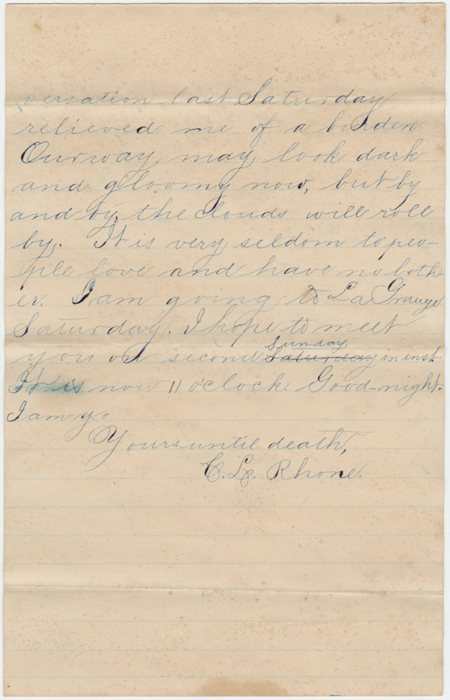 versation last Saturday
relieved me of a burden
Our way may look dark
and gloomy now, but by
and by the clouds will roll
by. It is very seldom to peo-
ple love and have no both-
er. I am going to La Grange
Saturday. I hope to meet
you on second Saturday Sunday in inst.
It is now 11 oclock Good-night.
I am y.
Yours until death,
C. L. Rhone.